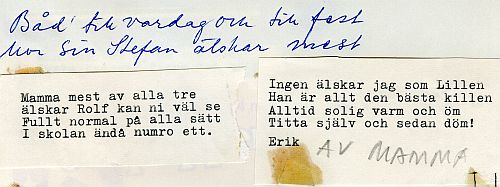 Båd' till vardag och till fest
hor sin Stefan älskar mest
Mamma mest av alla tre
älskar Rolf kan ni väl se
Fullt normal på alla sätt
I skolan ändå numro ett.
Ingen älskar jag som Lillen
Han är allt den bästa killen
Alltid solig varm och öm
Titta själv och sedan döm!
Erik AV MAMMA